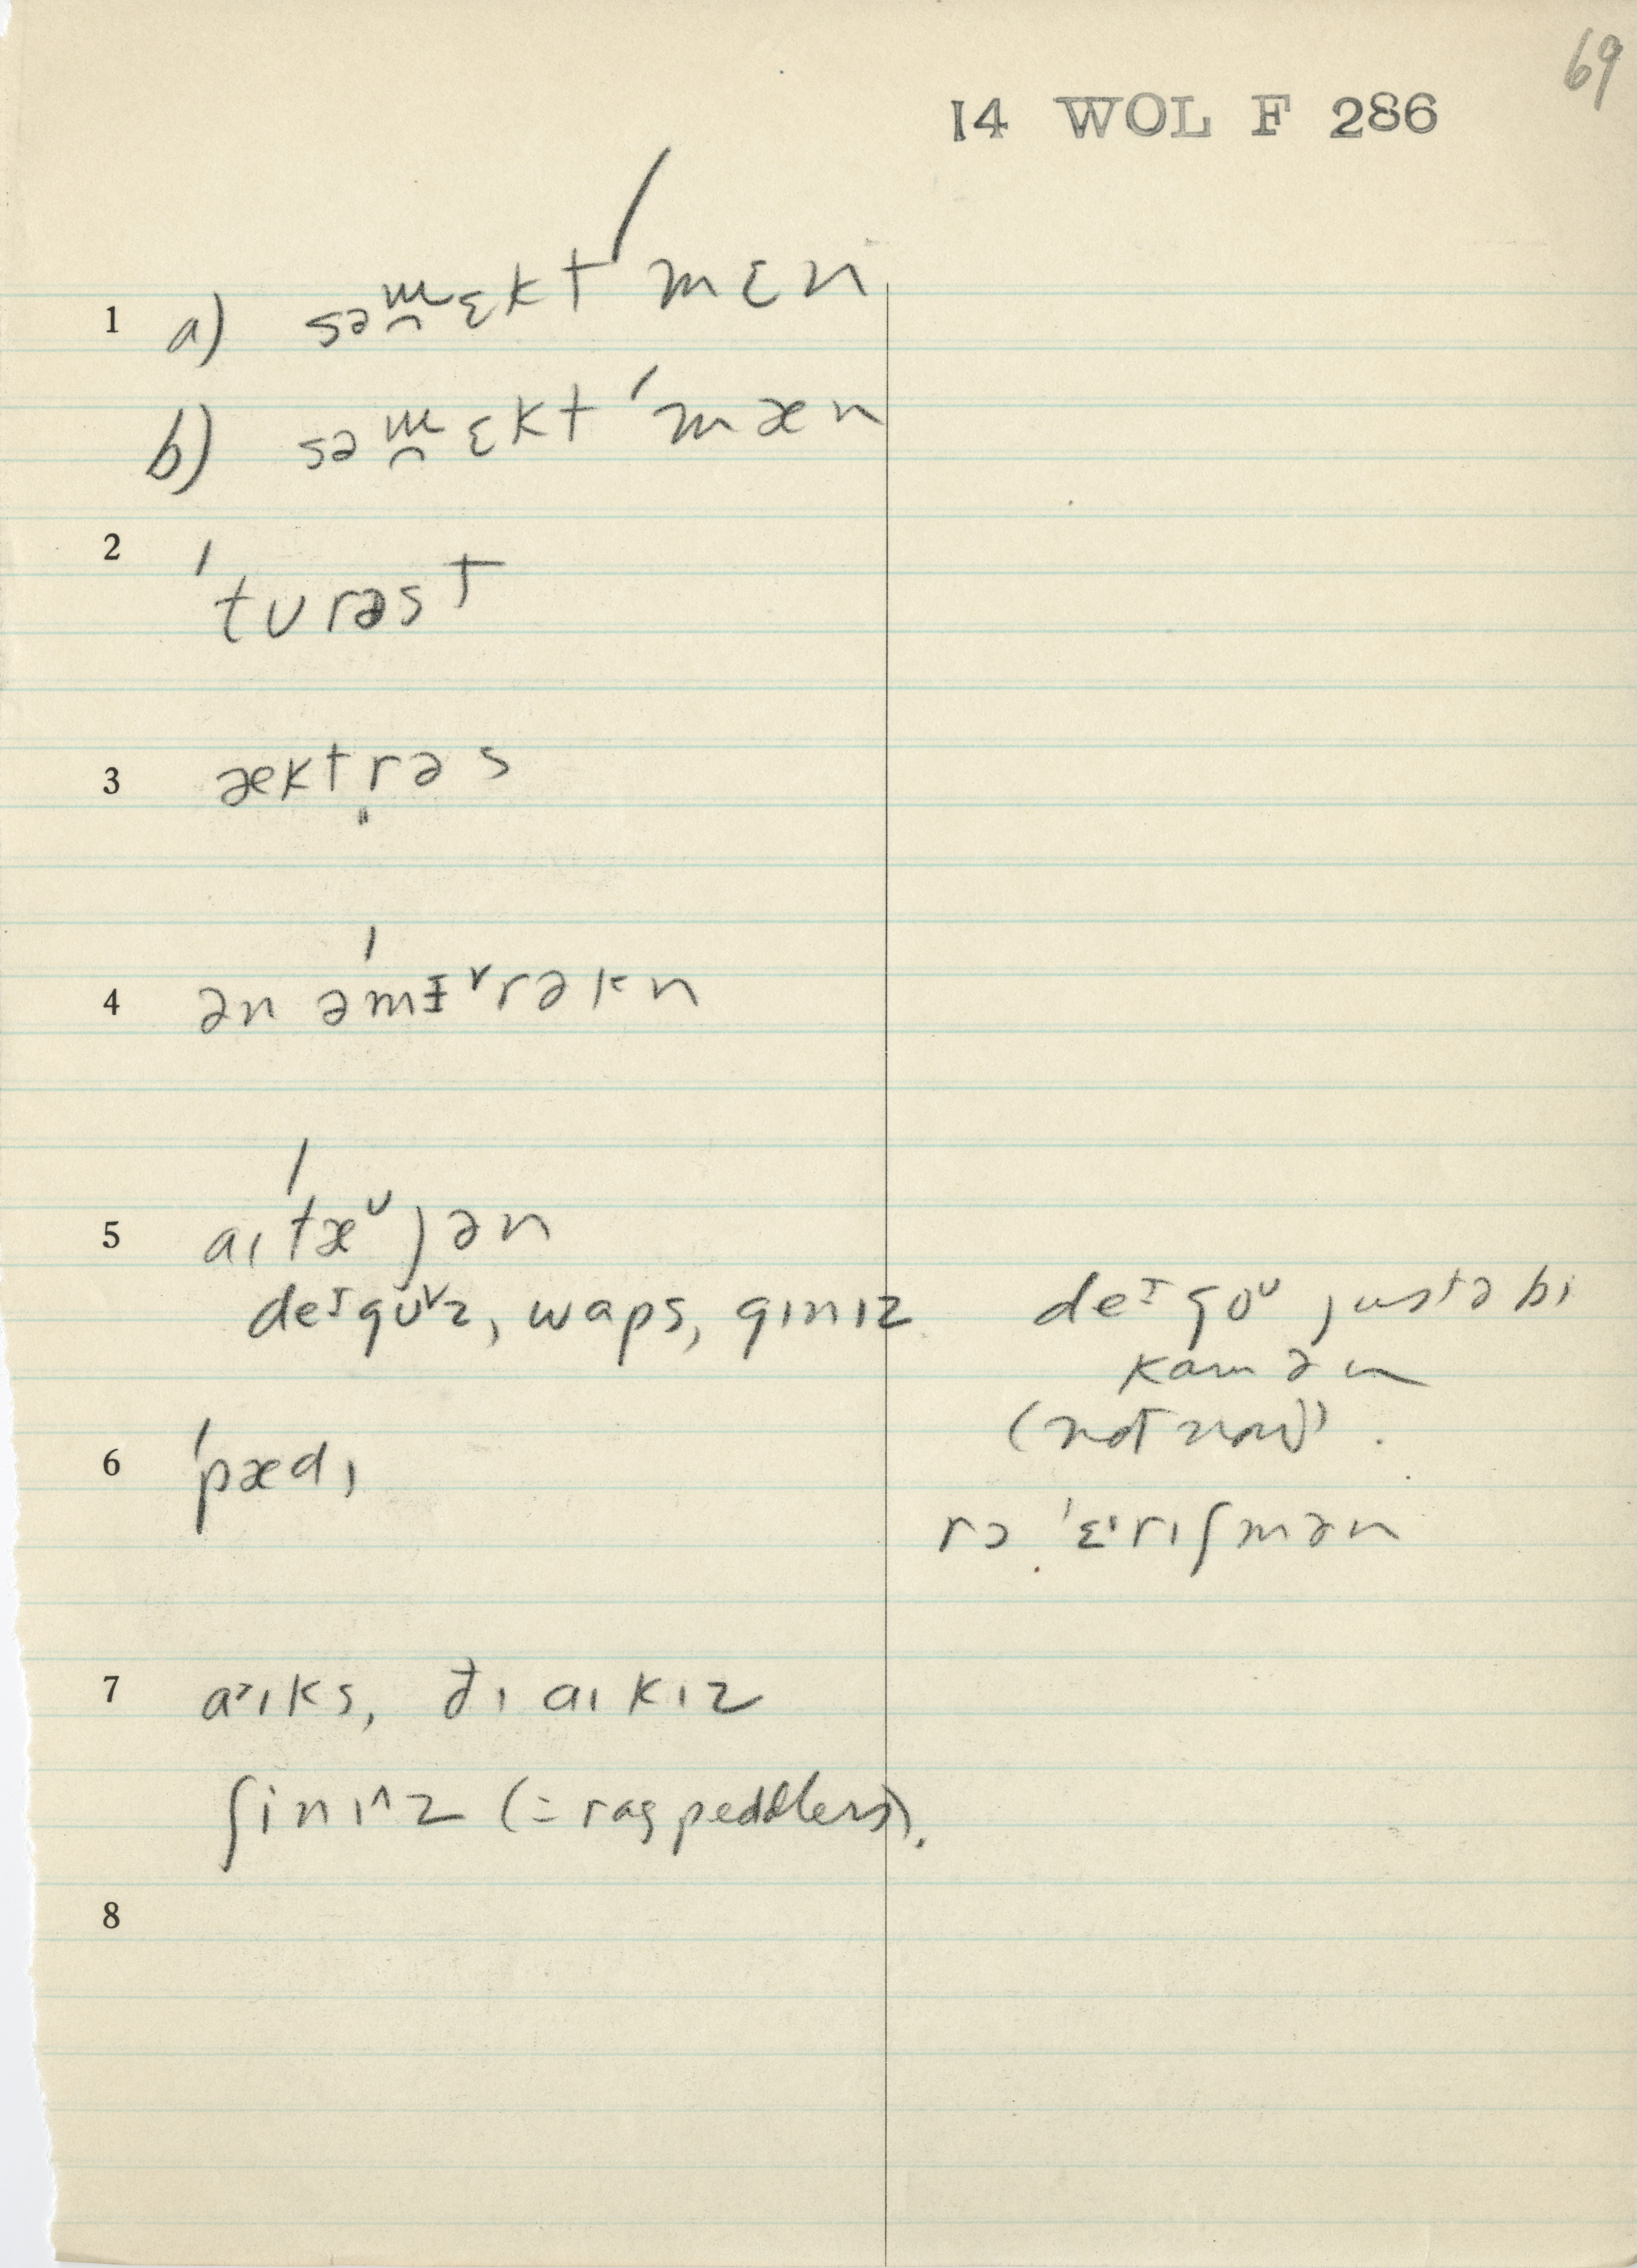 69
14 WOL F 286
1 a) səm̯ɛkt ˈmɛn
b) səm̯ɛkt ˈmæn
2 ˈtʊrəst
3 æktrəs
4 ən əˈmɪᵛrəkn
5 aɪˈtæᵁjən
deᴵgoᵛz, waps, gɪnɪz
deᴵgoᵁ justə bi
kamən
(not now).
6 ˈpædɪ
rɔ ˈɛᶦrɪʃmən
7 aᵊɪks, ðɪ aɪkɪz
ʃinɪ^z (= rag peddlers).
8